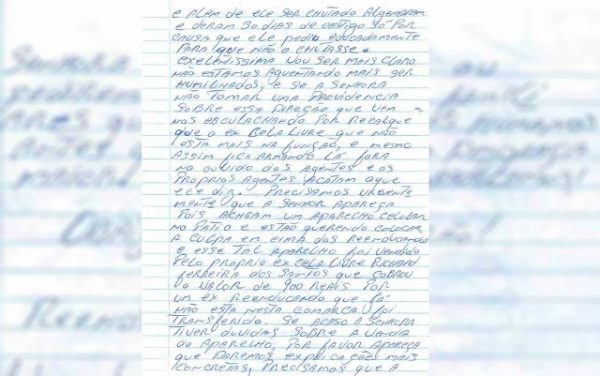 e além de ele ser chutado algemaram
e deram 30 dias de castigo só por
causa que ele pediu educadamente
para que não o chutasse.
Exelentíssima vou ser mais claro
não estamos aguentando mais ser
humilhados, e se a senhora
não tomar uma providencia
sobre essa direção que vem
nos esculachando por recalque
que o ex cela livre que não
está mais na função, e mesmo
assim fica armando lá fora
no ouvido dos agentes e os
proprios agentes acatam aque
ele diz. Precisamos urgente
mente que a senhor apareça
pois acharam um aparelho celular
no patio e estão querendo colocar
a culpa en cima dos reenducandos
e esse tal aparelho foi vendido
pelo proprio ex cela livre Richard
Ferreira dos Santos que cobrou
o valor de 900 reais por
um ex reenducando que já
não esta nesta comarca foi
transferido. Se acaso a senhora
tiver duvidas sobre a venda
do aparelho, por favor apareça
que daremos explicações mais
concretas, precisamos que a